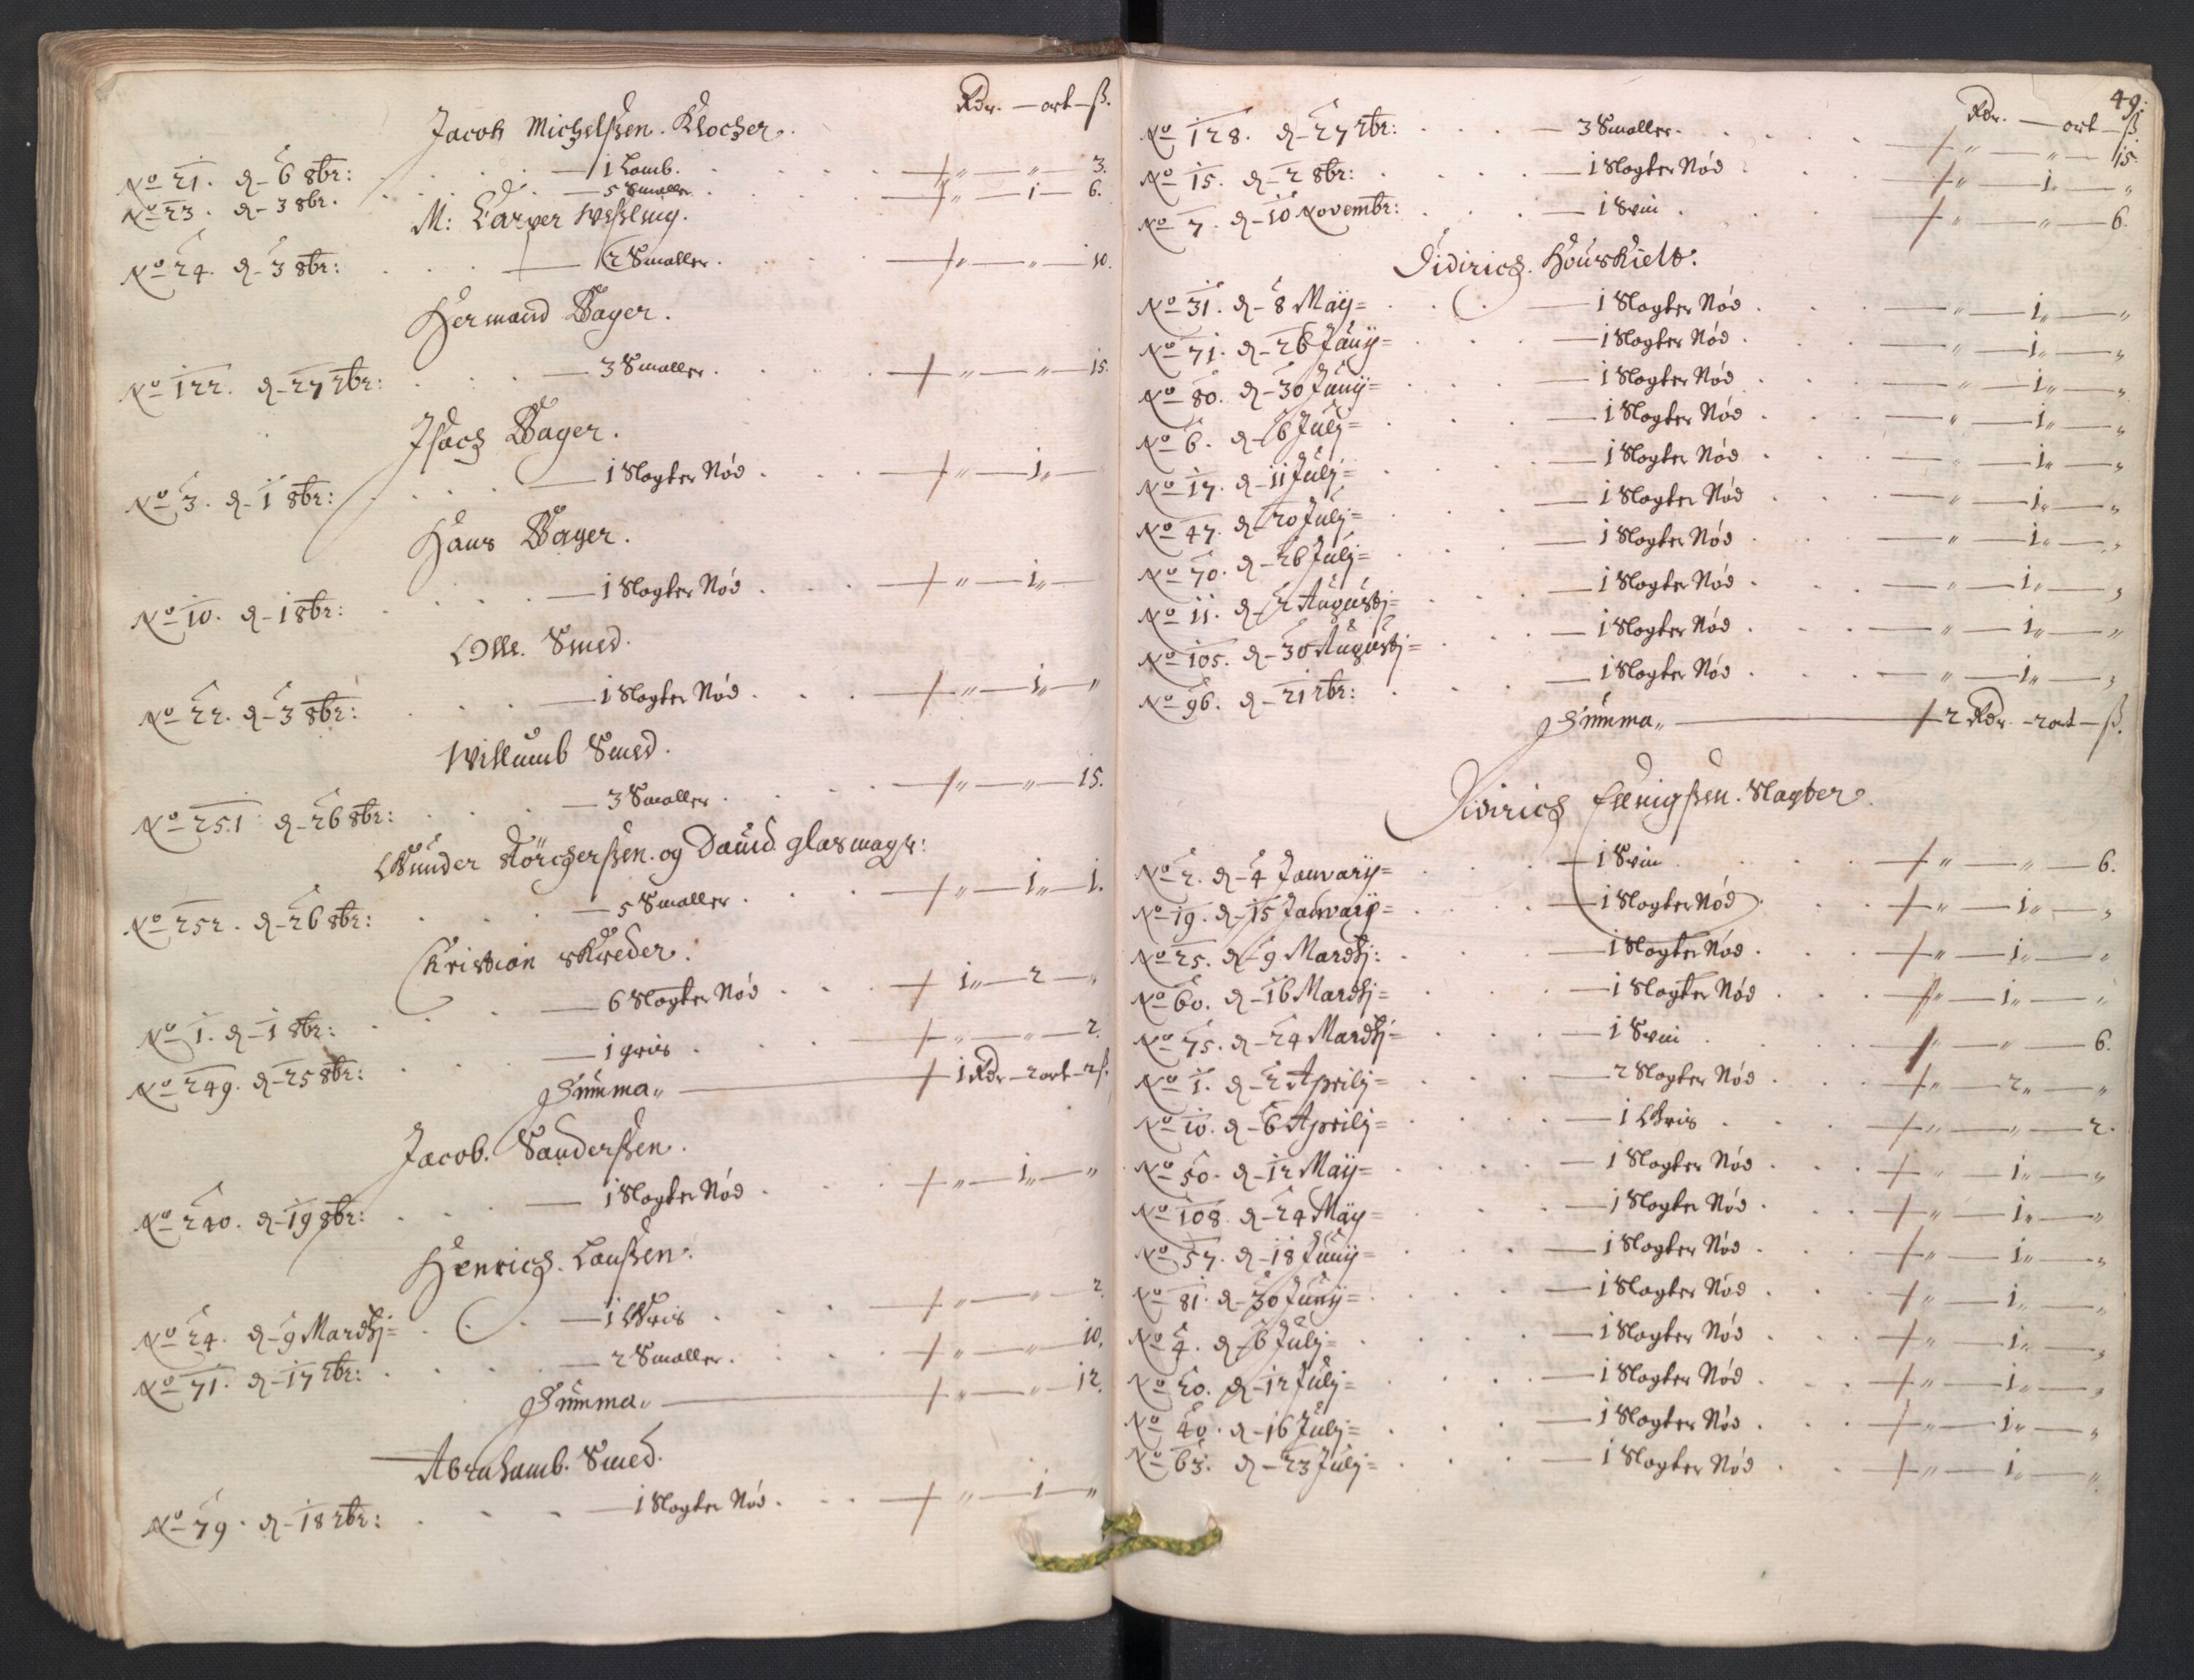 Rdr. — ort — ß.
Jacob Michelßen. Klocher.
No 21. d. 6 8br: 1 Lamb. " — " — 3.
No 23. d. 3 8br. 5 Smaller " — 1 — 6.
M: Carper Weßling.
No 24. d. 3 8br: 2 Smaller. " — " — 10.
Hermand Bager.
No 122. d. 27 7br: 3 Smaller. " — " — 15.
Isach Bager.
No 3. d. 1 8br: 1 Slagter Nød. " — 1 "
Hans Bager.
No 10. d. 1 8br: 1 Slagter Nød " — 1 "
Olle. Smed.
No 22. d. 3 8br: 1 Slagter Nød. " — 1 — "
Willumb Smed.
No 251 d. 26 8br: 3 Smaller. " — " — 15.
Gunder Størcherßen. og David glasmagr:
No 252. d. 26 8br: 5 Smaller. " — 1 — 1.
Christian skreder.
No 1. d. 1 8br: 6 Slagter Nød 1 — 2 — "
No 249. d. 25 8br: 1 gris. " — " — 2.
Summa. 1 Rdr — 2 ort — 2 ß.
Jacob. Sanderßen.
No 240. d. 19 8br: 1 Slagter Nød " — 1 — "
Henrich. Laußen.
No 24. d. 9 Martij = 1 Gris " — " — 2
No 71. d. 17 7br: 2 Smaller. " — " — 10.
Summa. " — " — 12.
Abrahamb. Smed.
No 79. d. 18 7br: 1 Slagter Nød. " — 1 — "
49.
Rdr. — ort — ß
No 128. d. 27 7br: 3 Smaller. " — " — 15.
No 15. d. 2 8br: 1 Slagter Nød " — 1 — "
No 7. d. 10 Novembr: 1 Svin. " — " — 6.
Didirich. Houskield.
No 31. d. 8 Maij = 1 Slagter Nød. " — 1 — "
No 71. d. 26 Junij = 1 Slagter Nød. " — 1 — "
No 80. d. 30 Junij = 1 Slagter Nød " — 1 — "
No 6. d. 6 Julij = 1 Slagter Nød " — 1 — "
No 17. d. 11 Julij = 1 Slagter Nød " — 1 — "
No 47. d. 20 Julij = 1 Slagter Nød " — 1 — "
No 70. d. 26 Julij = 1 Slagter Nød " — 1 — "
No 11. d. 2 Augustj = 1 Slagter Nød " — 1 — "
No 105. d. 30 Augustj = 1 Slagter Nød " — 1 — "
No 96. d. 21 7br: 1 Slagter Nød. " — 1 — "
Summa. 2 Rdr. — 2 ort — ß.
Didirich Slagter.
No 2. d. 4 Januarij = 1 Svin " — " — 6.
No 19. d. 15 Januarij = 1 Slagter Nød " — 1 — "
No 25. d. 9 Martij: 1 Slagter Nød. " — 1 — "
No 60. d. 16 Martij = 1 Slagter Nød " — 1 — "
No 75. d. 24 Martij = 1 Svin " — " — 6.
No 1. d. 2 Aprilj = 2 Slagter Nød " — 2 — "
No 10. d. 6 Aprilj = 1 Gris " — " — 2.
No 50. d. 12 Maij = 1 Slagter Nød " — 1 — "
No 108. d. 24 Maij = 1 Slagter Nød " — 1 — "
No 57. d. 18 Junij = 1 Slagter Nød " — 1 — "
No 81. d. 30 Junij = 1 Slagter Nød " — 1 — "
No 4. d. 6 Julij = 1 Slagter Nød " — 1 — "
No 20. d. 12 Julij = 1 Slagter Nød " — 1 — "
No 40. d. 16 Julij = 1 Slagter Nød " — 1 — "
No 63. d. 23 Julij = 1 Slagter Nød " — 1 — "